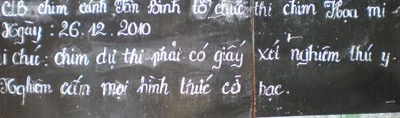 CLB chim cảnh Tân Bình tổ chức thi chim Họa mi
Ngày : 26.12.2010
i chú : chim dự thi phải có giấy xét nghiệm thú y.
Nghiêm cấm mọi hình thức cờ bạc.